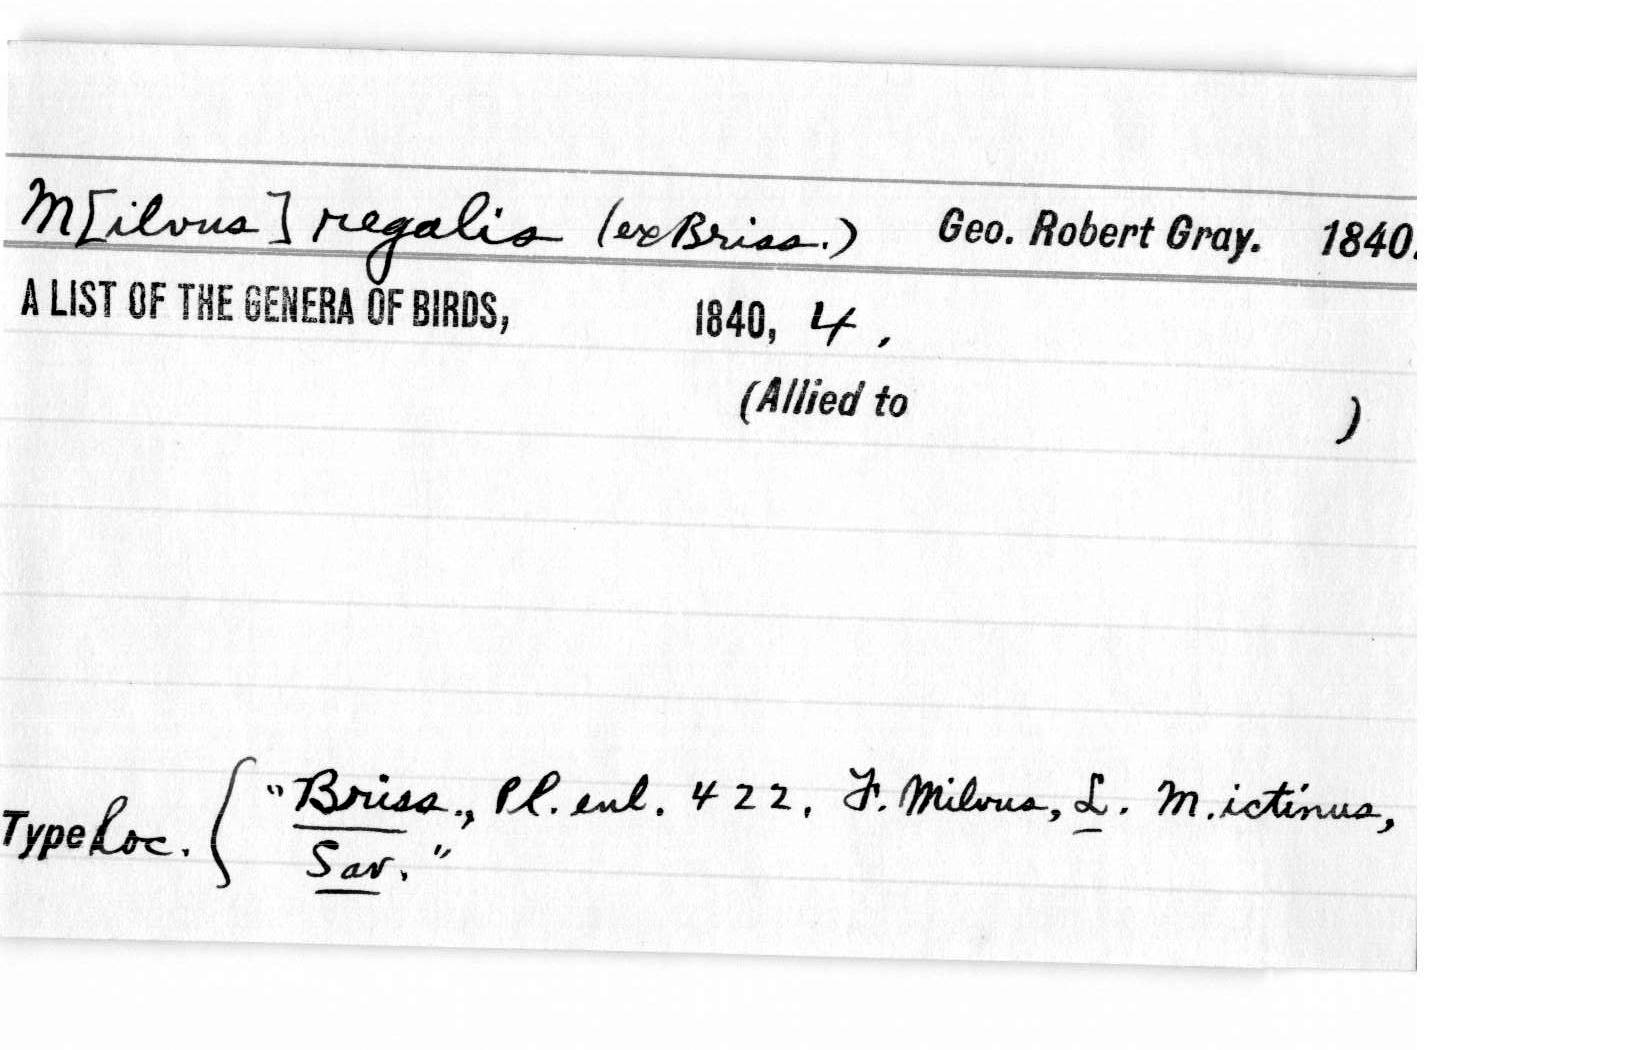 M[ilvus] regalis (ex Briss.) Geo. Robert Gray. 1840.
A LIST OF THE GENERA OF BIRDS, 1840, 4,
(Allied to )
Type loc. { "Briss., Pl. enl. 422, F. Milvus, L. M. ictinus,
Sav."